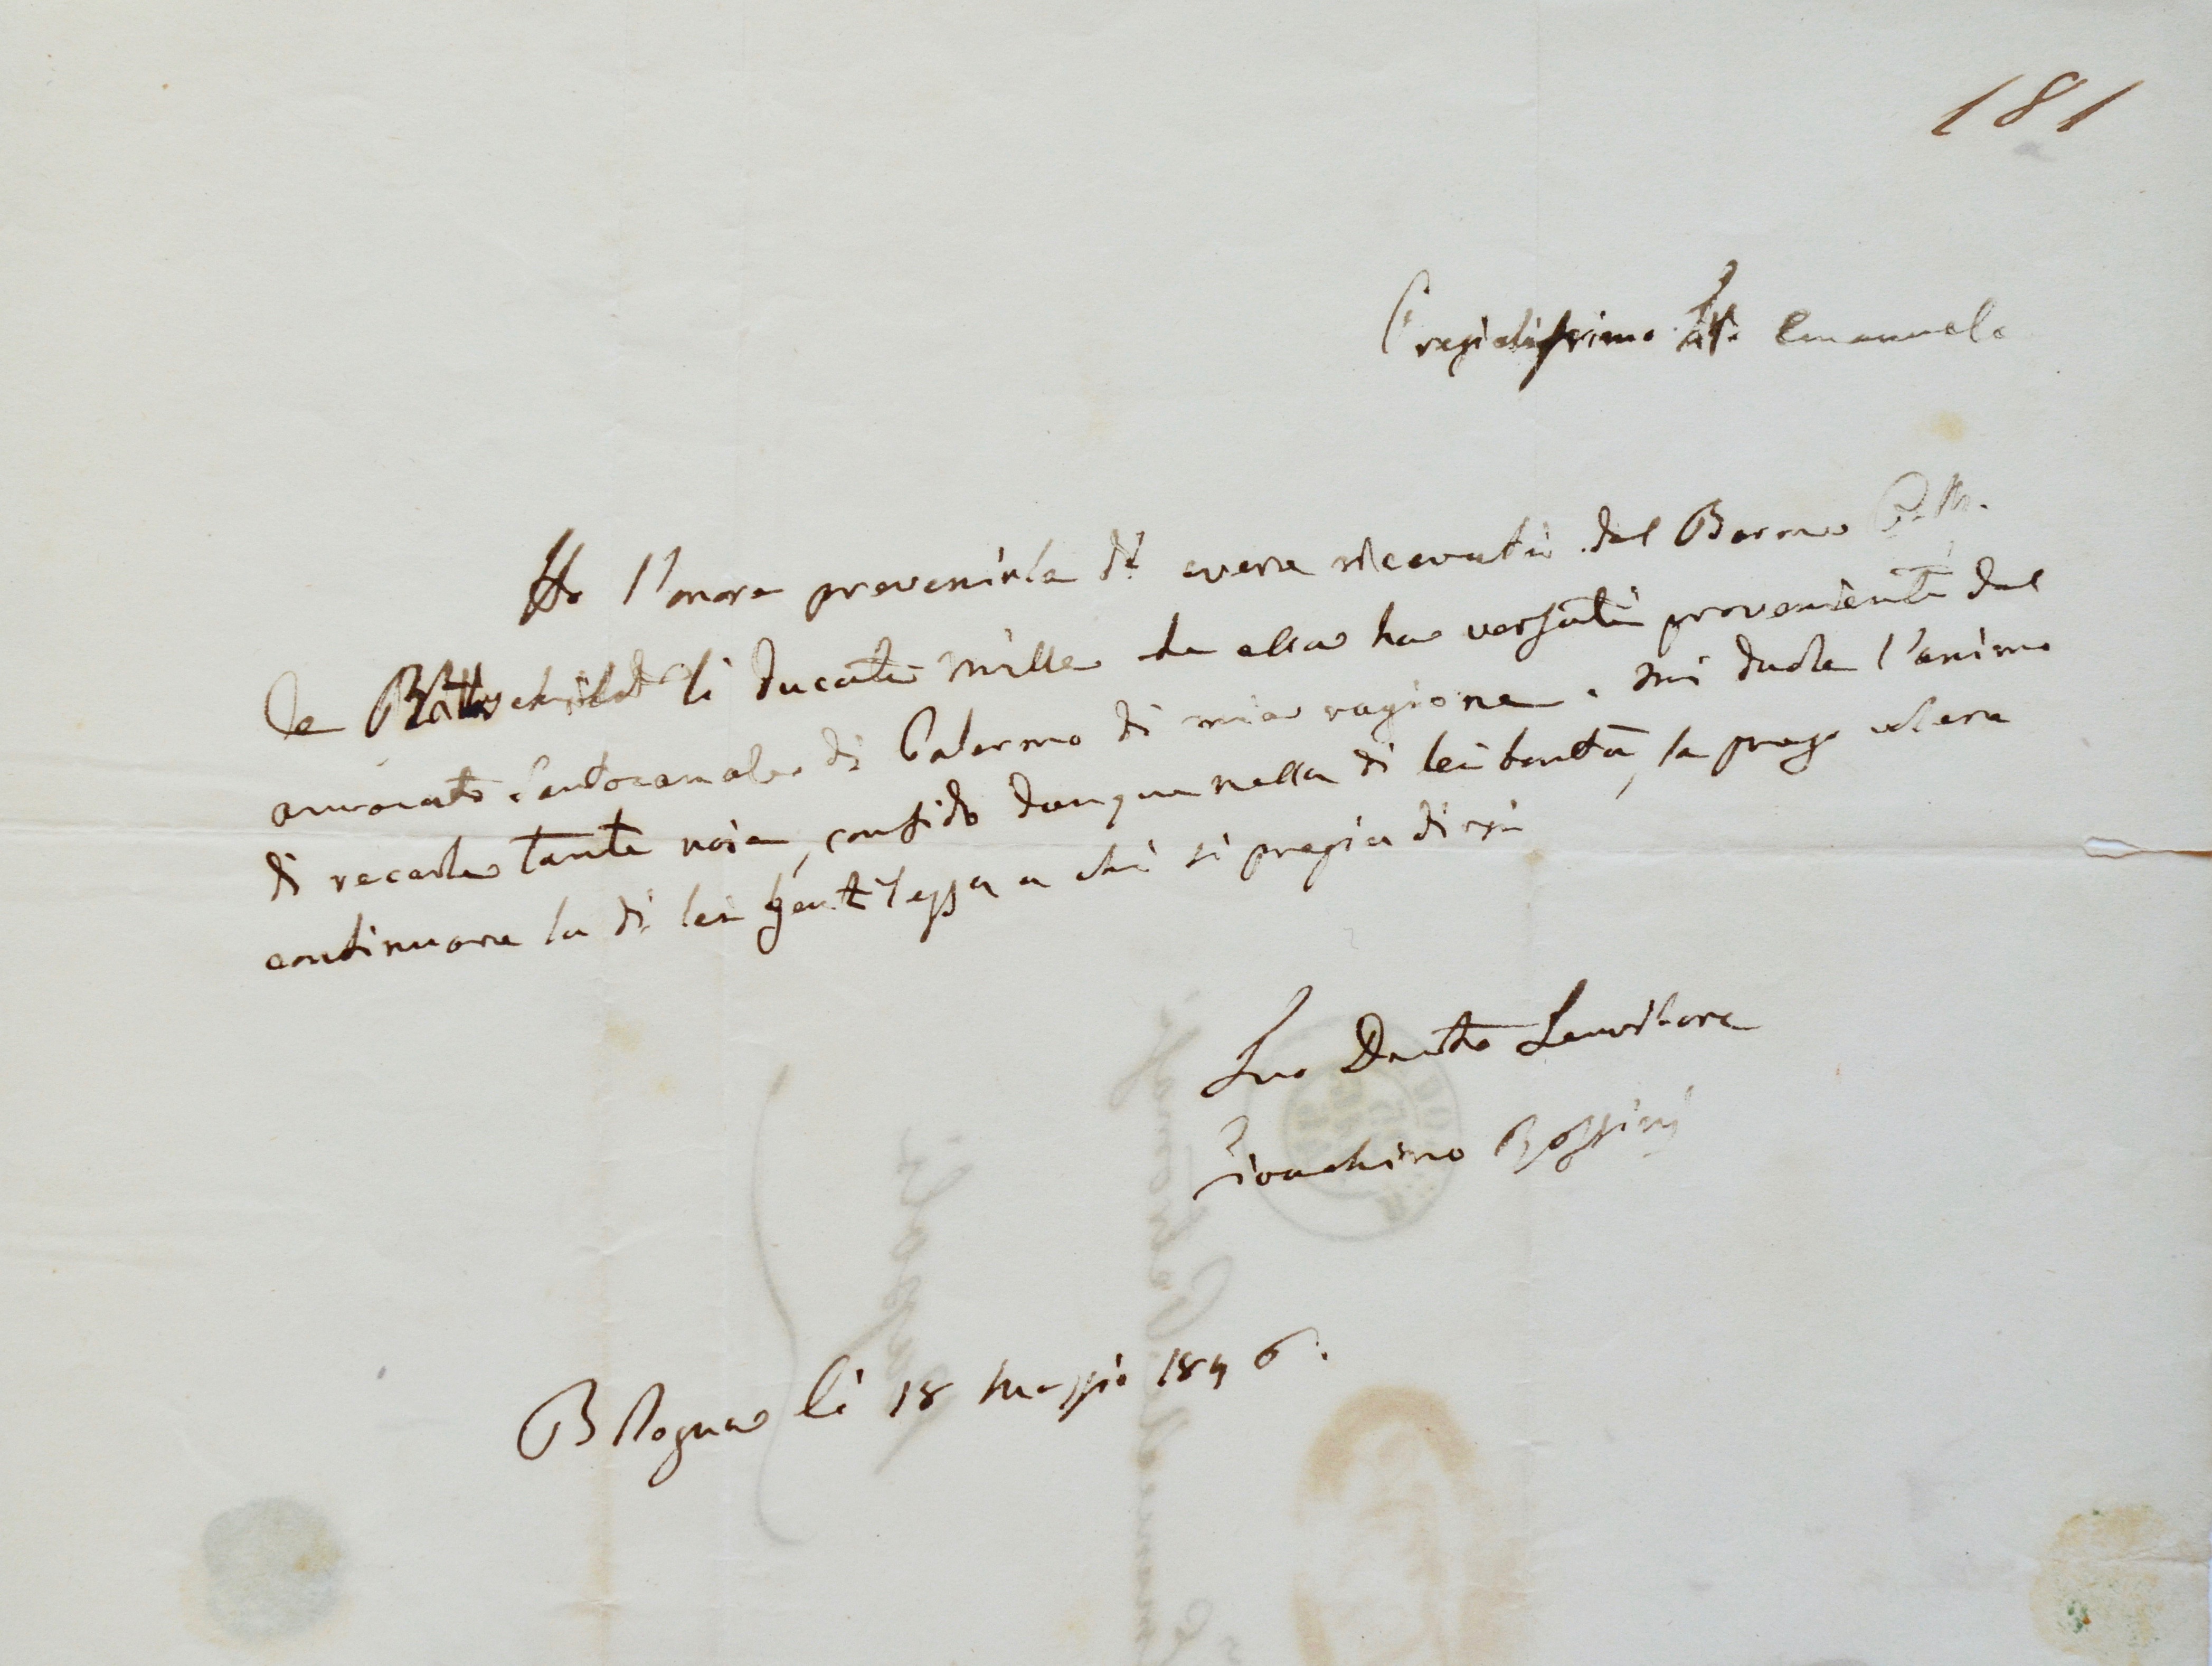 181
Pregiatissimo Sr. Emanuele
Ho l'onore prevenirla di avere ricevuti dal Barone C. M.
de Rothschild li ducati mille che ella ha versati provenienti dal
avvocato Santocanale di Palermo di mia ragione. mi duole l'animo
di recarle tante noie, confido dunque nella di lei bontà, la prego volere
continuare la di lei gentilezza a chi si pregia dirsi
Suo Devoto Servitore
Gioachino Rossini
Bologna li 18 Maggio 1846.